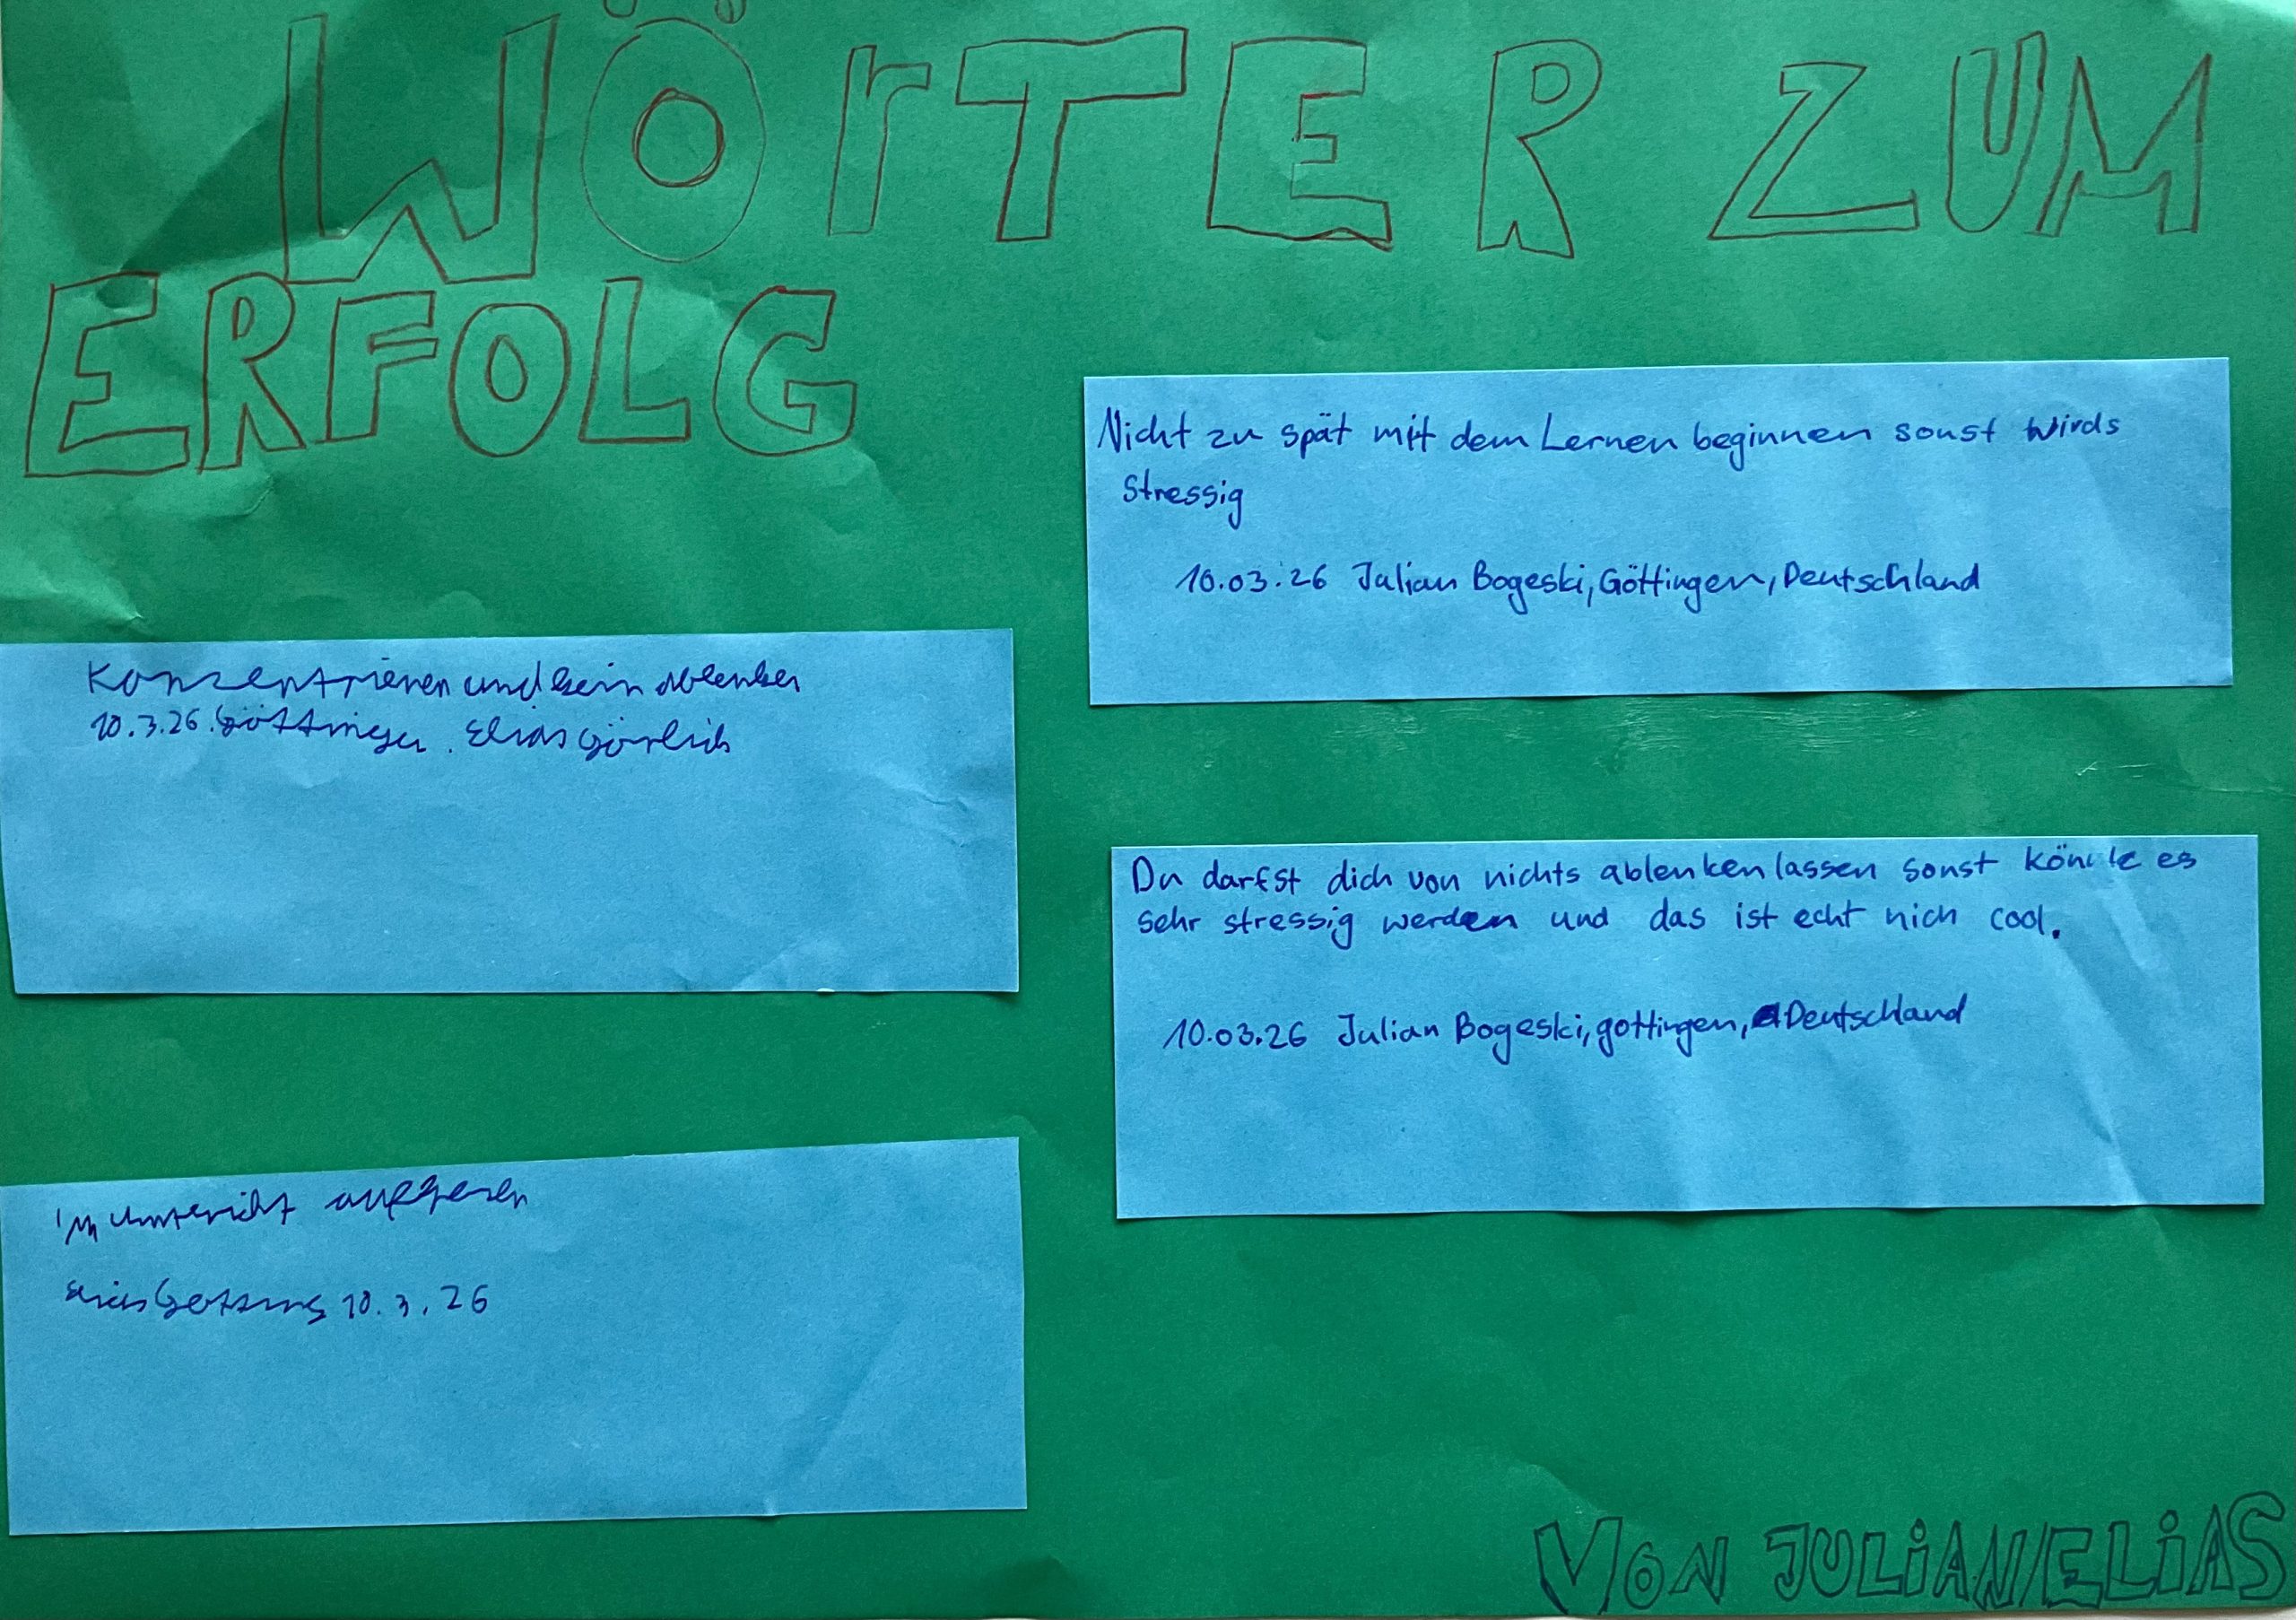 WÖrTER ZUM
ERFOLG
Nicht zu spät mit dem Lernen beginnen sonst wirds
stressig
10.03.26 Julian Bogeski, Göttingen, Deutschland
Konzentrieren und kein ablenken
10.3.26. Göttingen. Elias Görlich
Du darfst dich von nichts ablenken lassen sonst könnte es
sehr stressig werden und das ist echt nich cool.
10.03.26 Julian Bogeski, gottingen, Deutschland
im Unterricht
Elias 10.3.26
VON JULiAN/ELiAS